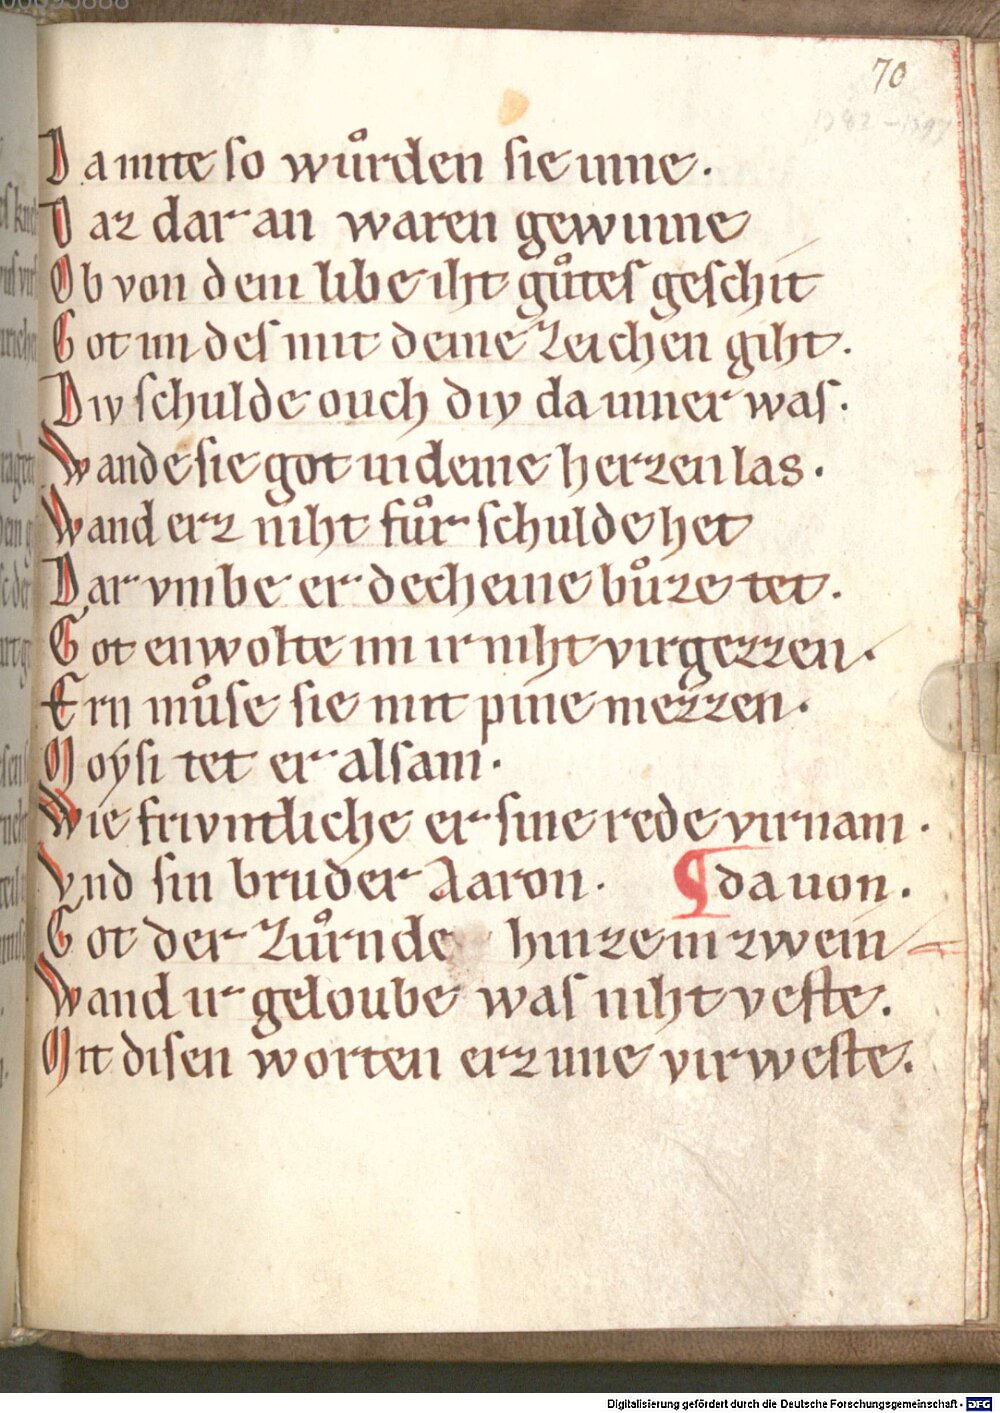 70
1382 – 1397
Da mite so wuͦrden sie inne.
Daz dar an waren gewinne
Ob von dem libe iht guͦtes geschit
Got im des mit deme zeichen giht.
Diy schulde ouch diy da inner was.
Wande sie got in deme herzen las.
Wand erz niht fuͦr schulde het
Dar vmbe er decheine buͦze tet.
Got enwolte im ir niht virgezzen.
Ern muͦse sie mit pine mezzen.
Moẏsi tet er alsam.
Wie frivntliche er sine rede virnam.
Vnd sin bruder Aaron. ¶ da uon.
Got der zuͦrnde hinze in zwein
Wand ir geloube was niht veste.
Mit disen worten erz inne virweste.
Digitalisierung gefördert durch die Deutsche Forschungsgemeinschaft - DFG